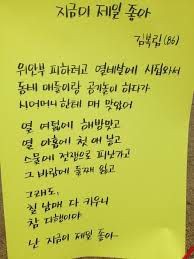 지금이 제일 좋아
김복림 (86)
위안부 피하려고 열네살에 시집와서
동네 얘들이랑 공기놀이 하다가
시어머니 한테 매 맞았어
열 여덟에 해방맞고
열 아홉에 첫 애 낳고
스물에 전쟁으로 피난가고
그 바람에 둘째 잃고
그래도,
칠 남매 다 키우니
참 다행이야
난 지금이 제일 좋아~